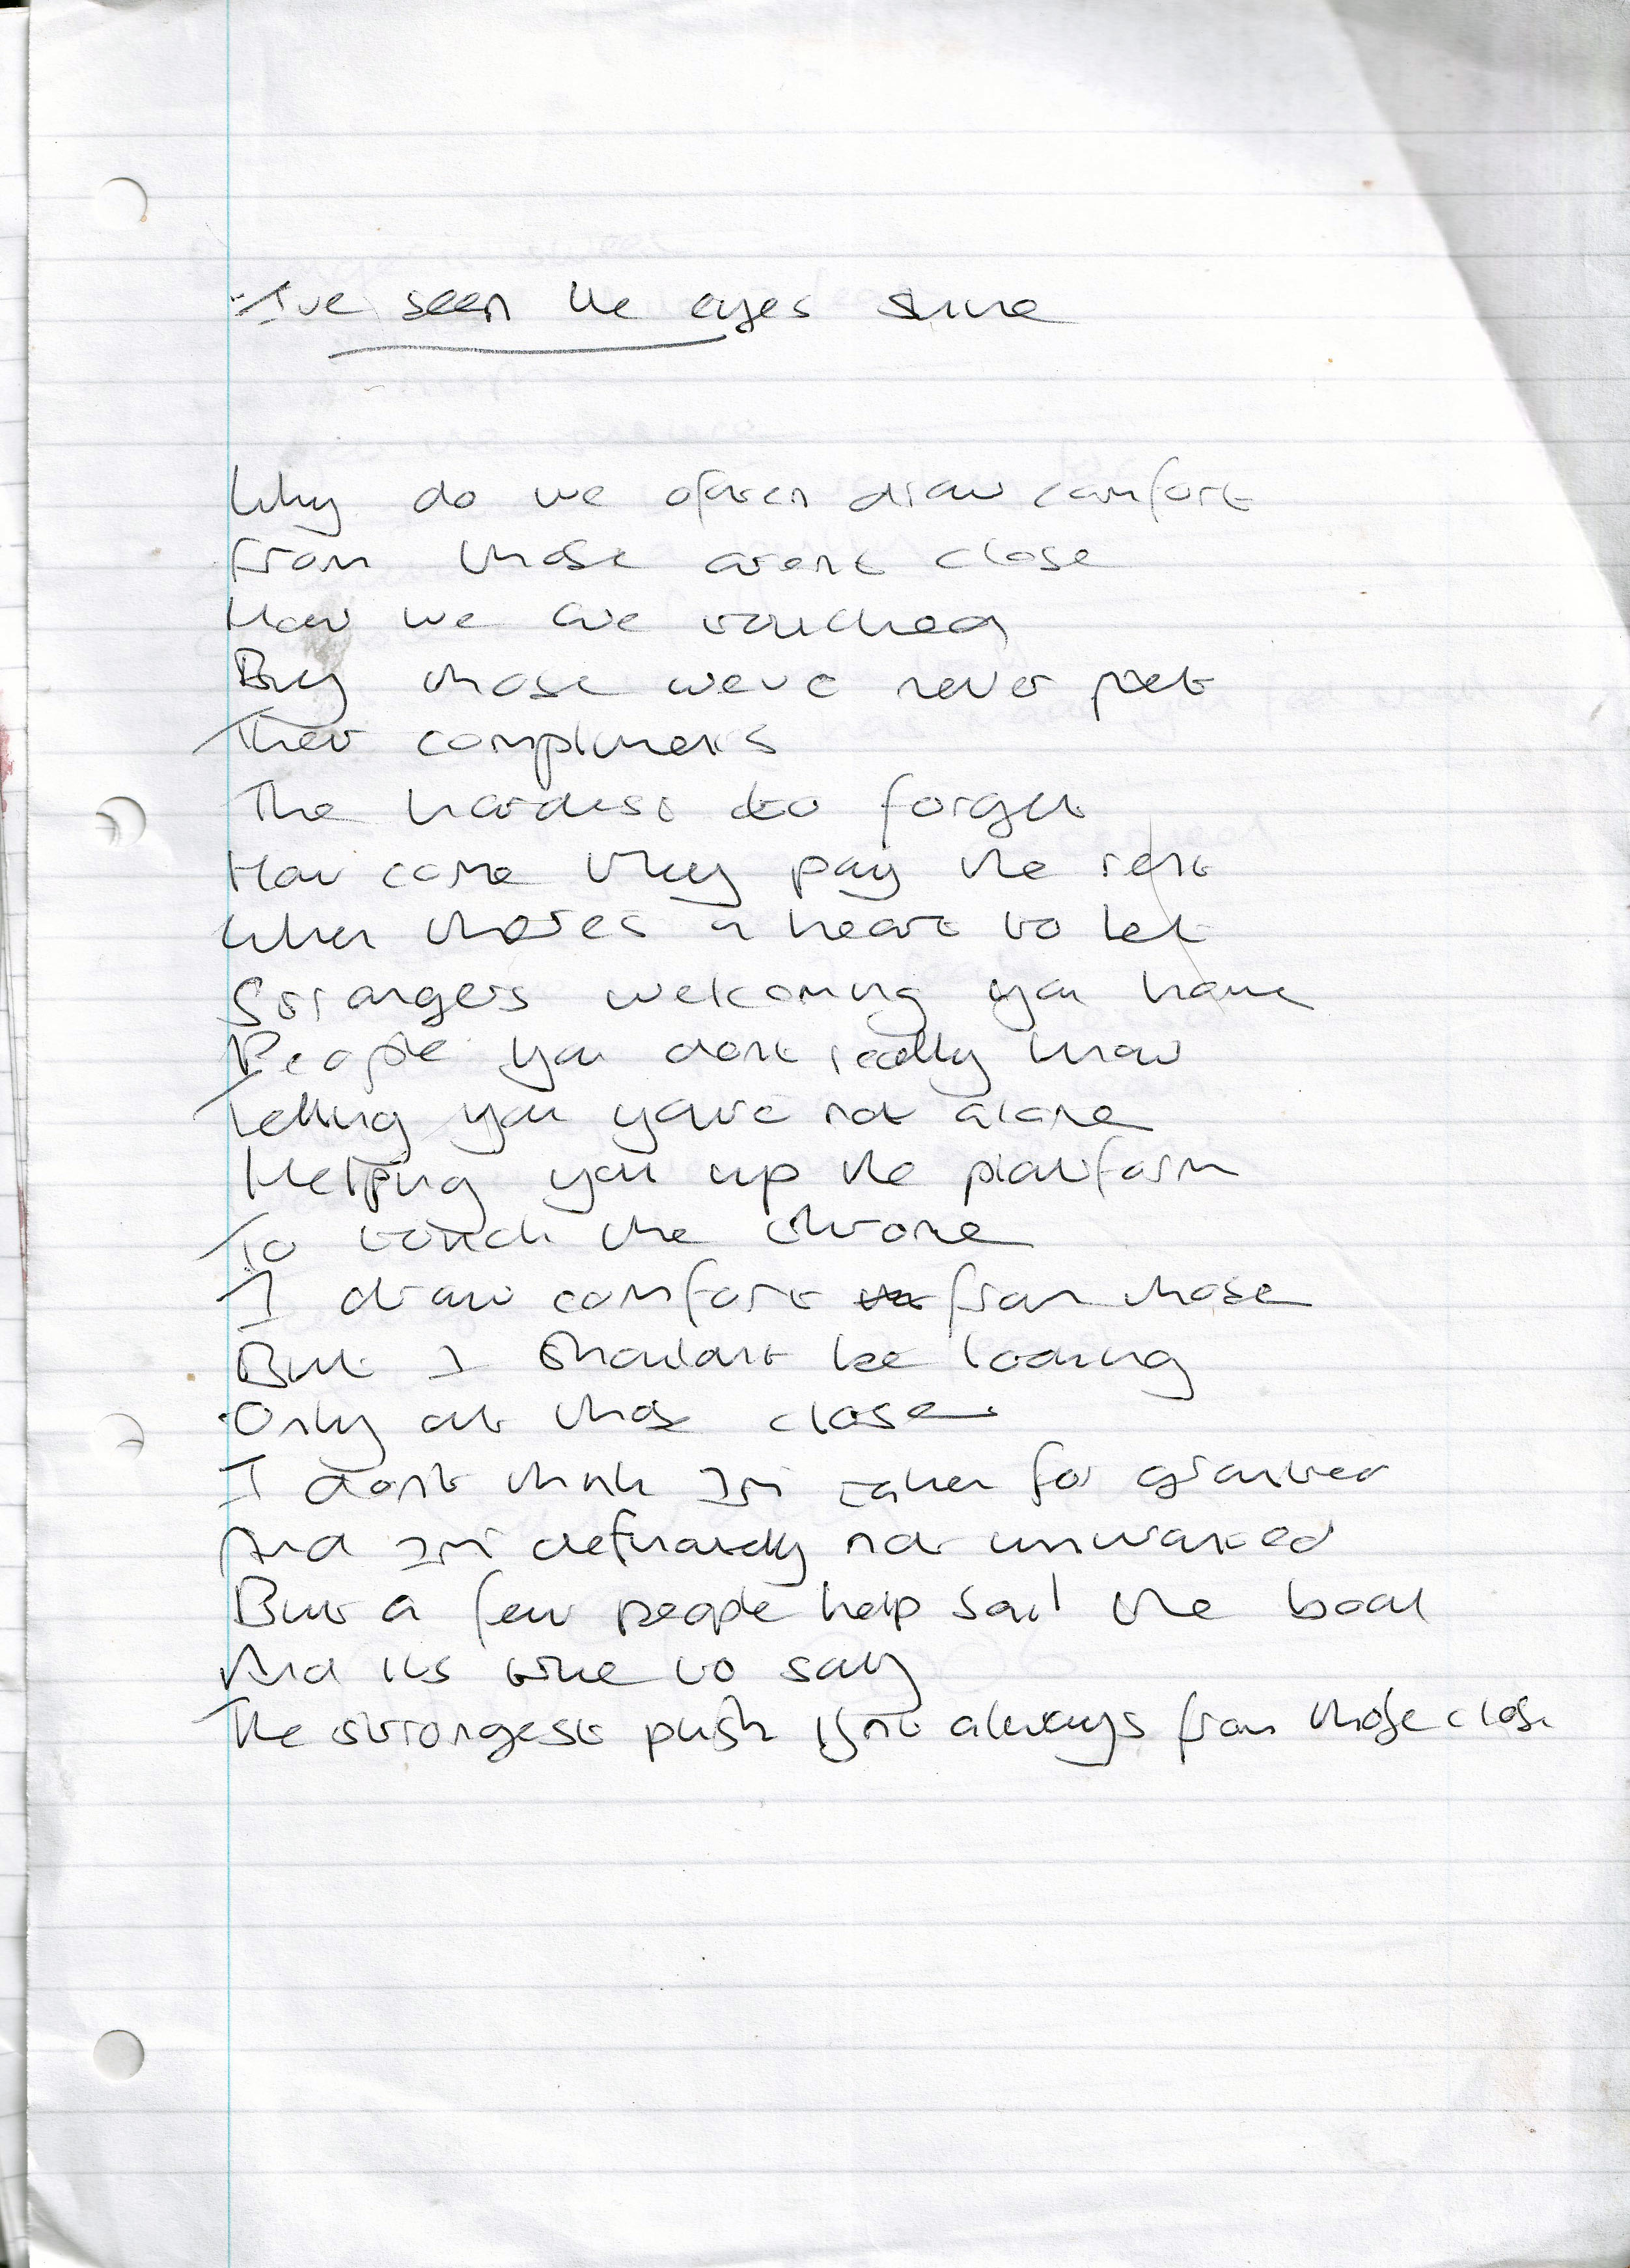 I've seen the eyes shine
Why do we often draw comfort
From those arent close
How we are touched
By those weve never met
Their compliments
The hardest to forget
How come they pay the rent
When theres a heart to let
Strangers welcoming you home
People you dont really know
Telling you youre not alone
Helping you up the platform
To touch the throne
I draw comfort from those
But I shouldnt be looking
Only at those close
I dont think Im taken for granted
And Im definately not unwanted
But a few people help sail the boat
And its time to say
The strongest push isnt always from those close